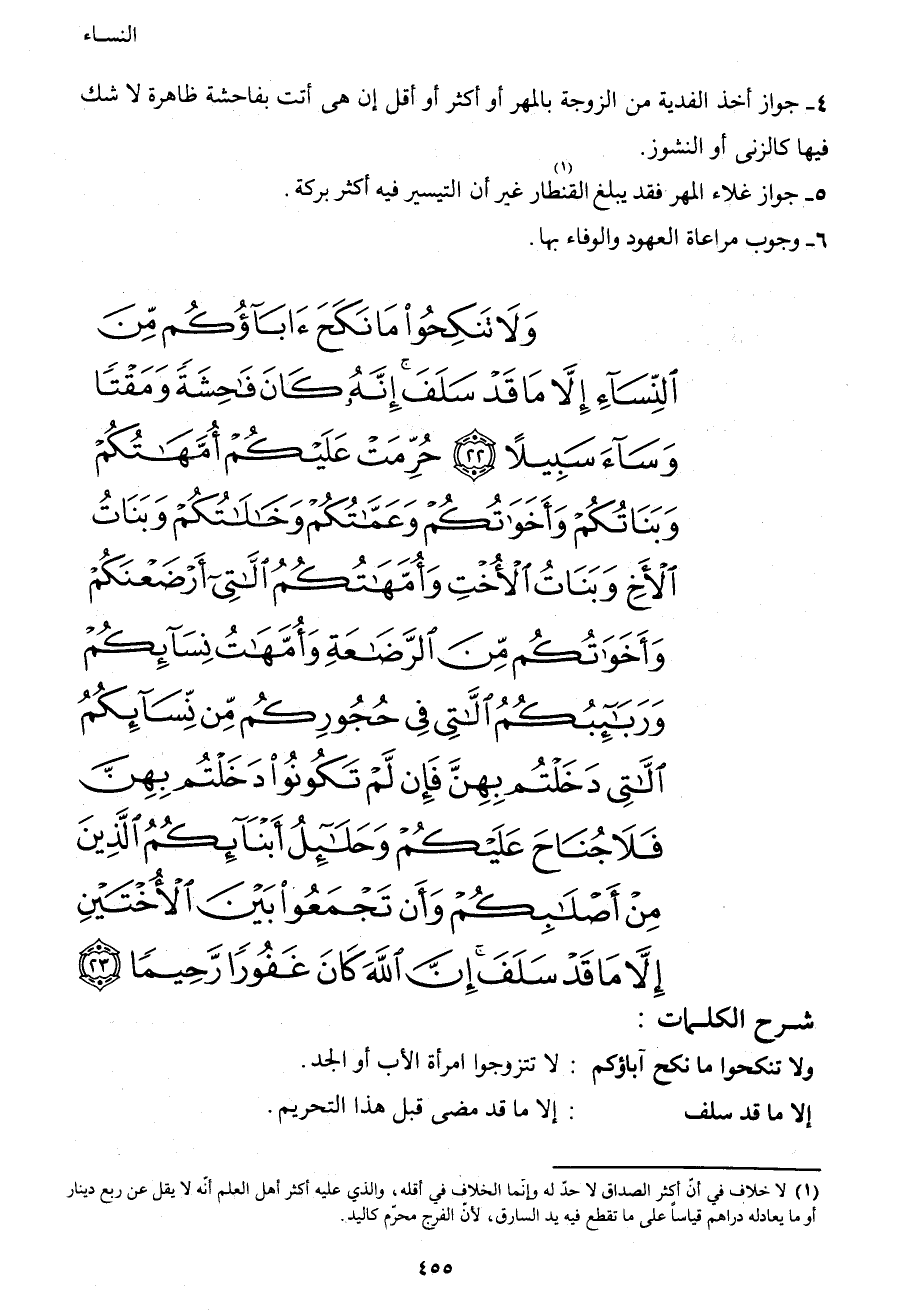 النساء
٤ـ جواز أخذ الفدية من الزوجة بالمهر أو أكثر أو أقل إن هى أتت بفاحشة ظاهرة لا شك
فيها كالزنى أو النشوز.
٥ـ جواز غلاء المهر فقد يبلغ القنطار (١) غير أن التيسير فيه أكثر بركة.
٦ـ وجوب مراعاة العهود والوفاء بها.
وَلَا تَنكِحُوا۟ مَا نَكَحَ ءَابَآؤُكُم مِّنَ
ٱلنِّسَآءِ إِلَّا مَا قَدْ سَلَفَ ۚ إِنَّهُۥ كَانَ فَٰحِشَةً وَمَقْتًا
وَسَآءَ سَبِيلًا ٢٢ حُرِّمَتْ عَلَيْكُمْ أُمَّهَٰتُكُمْ
وَبَنَاتُكُمْ وَأَخَوَٰتُكُمْ وَعَمَّٰتُكُمْ وَخَٰلَٰتُكُمْ وَبَنَاتُ
ٱلْأَخِ وَبَنَاتُ ٱلْأُخْتِ وَأُمَّهَٰتُكُمُ ٱلَّٰتِىٓ أَرْضَعْنَكُمْ
وَأَخَوَٰتُكُم مِّنَ ٱلرَّضَٰعَةِ وَأُمَّهَٰتُ نِسَآئِكُمْ
وَرَبَٰٓئِبُكُمُ ٱلَّٰتِى فِى حُجُورِكُم مِّن نِّسَآئِكُمُ
ٱلَّٰتِى دَخَلْتُم بِهِنَّ فَإِن لَّمْ تَكُونُوا۟ دَخَلْتُم بِهِنَّ
فَلَا جُنَاحَ عَلَيْكُمْ وَحَلَٰٓئِلُ أَبْنَآئِكُمُ ٱلَّذِينَ
مِنْ أَصْلَٰبِكُمْ وَأَن تَجْمَعُوا۟ بَيْنَ ٱلْأُخْتَيْنِ
إِلَّا مَا قَدْ سَلَفَ ۚ إِنَّ ٱللَّهَ كَانَ غَفُورًا رَّحِيمًا ٢٣
شرح الكلمات :
ولا تنكحوا ما نكح آباؤكم : لا تتزوجوا امرأة الأب أو الجد.
إلا ما قد سلف : إلا ما قد مضى قبل هذا التحريم.
(١) لا خلاف في أنّ أكثر الصداق لا حدّ له وإنّما الخلاف في أقله، والذي عليه أكثر أهل العلم أنّه لا يقل عن ربع دينار
أو ما يعادله دراهم قياساً على ما تقطع فيه يد السارق، لأنّ الفرج محرّم كاليد.
٤٥٥